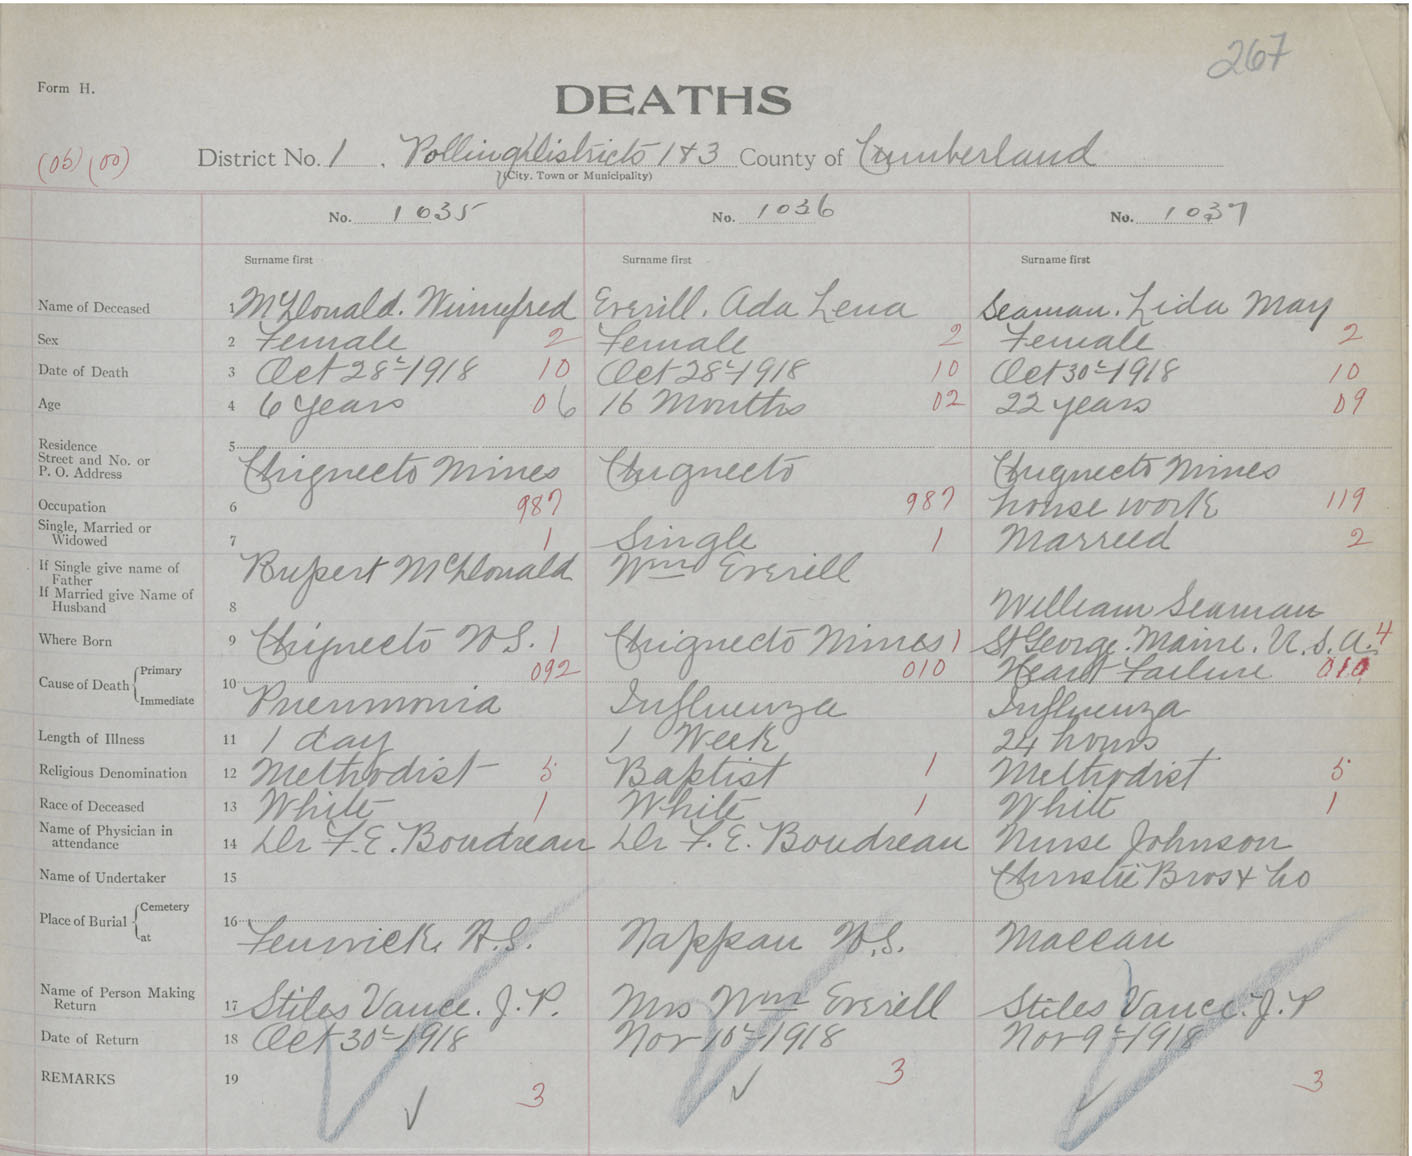 267
Form H.
DEATHS
(06) (00)
District No. 1 . Polling Districts 1 & 3 County of Cumberland
(City, Town or Municipality)
No. 1035 No. 1036 No. 1037
Surname first Surname first Surname first
Name of Deceased 1 McDonald. Winnifred Everill. Ada Lena Seaman. Lida May
Sex 2 Female 2 Female 2 Female 2
Date of Death 3 Oct 28th 1918 10 Oct 28th 1918 10 Oct 30th 1918 10
Age 4 6 years 06 16 Months 02 22 years 09
Residence 5
Street and No. or
P. O. Address Chignecto Mines Chignecto Chignecto Mines
Occupation 6 987 987 house work 119
Single, Married or
Widowed 7 1 Single 1 Married 2
If Single give name of
Father Rupert McDonald Wm Everill
If Married give Name of
Husband 8 William Seaman
Where Born 9 Chignecto N.S. 1 Chignecto Mines 1 St George. Maine. U.S.A. 4
Cause of Death Primary 092 010 Heart Failure 010
10
Immediate Pneumonia Influenza Influenza
Length of Illness 11 1 day 1 Week 24 hours
Religious Denomination 12 Methodist 5 Baptist 1 Methodist 5
Race of Deceased 13 White 1 White 1 White 1
Name of Physician in
attendance 14 Dr F.E. Boudreau Dr F.E. Boudreau Nurse Johnson
Name of Undertaker 15 Christie Bros & Co
Place of Burial Cemetery 16
at Fenwick, N.S. Nappan N.S. Maccan
Name of Person Making
Return 17 Stiles Vance. J.P. Mrs Wm Everill Stiles Vance. J.P
Date of Return 18 Oct 30th 1918 Nov 10th 1918 Nov 9th 1918
REMARKS 19 3 3 3